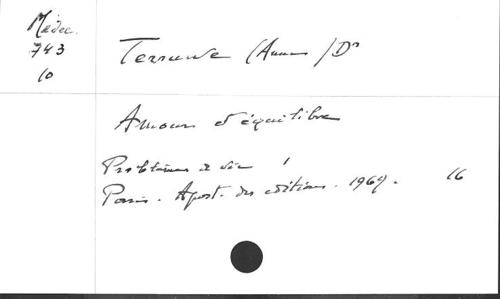 Médec.
743
10
Terruwe (Anna) Dr
Amour et équilibre
Problèmes de vie
Paris. Apost. des éditions. 1969. 16